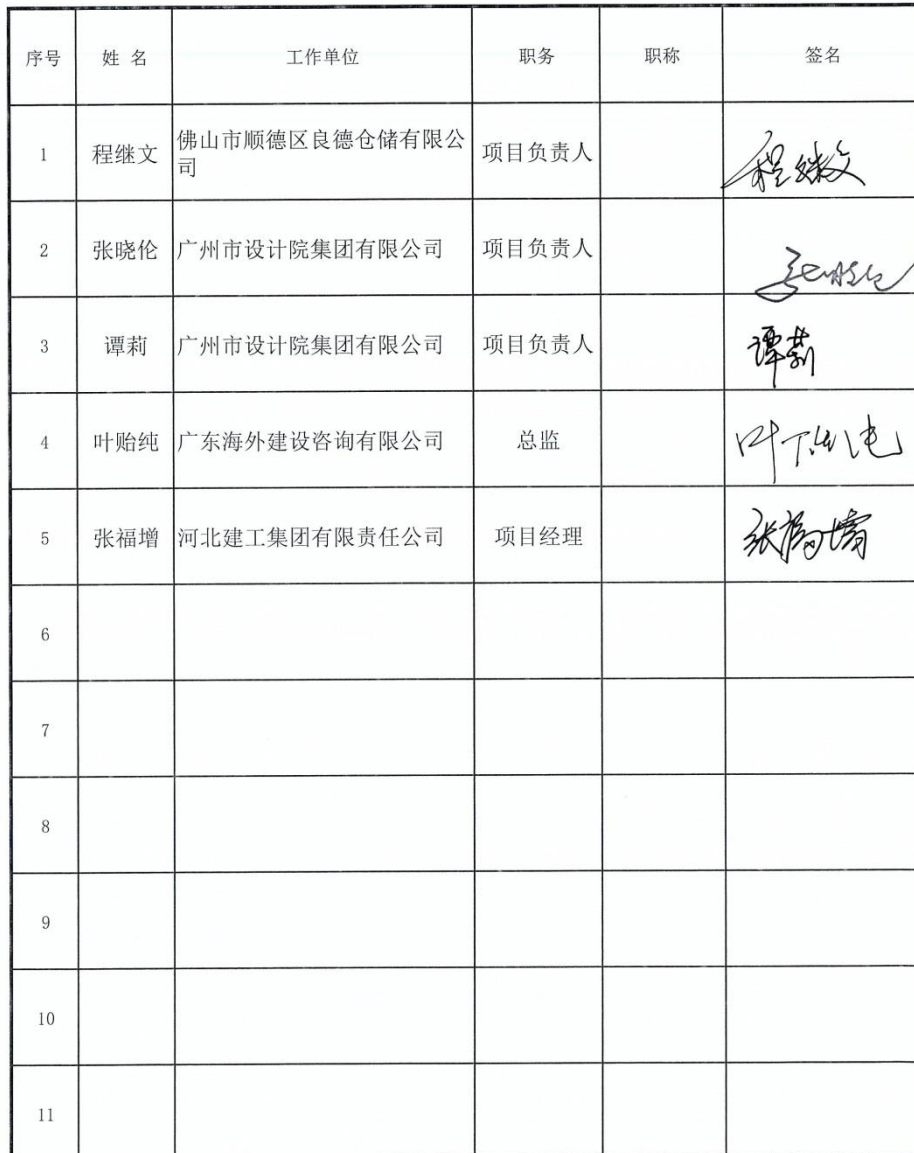 序号 姓 名 工作单位 职务 职称 签名
1 程继文 佛山市顺德区良德仓储有限公司 项目负责人 程继文
2 张晓伦 广州市设计院集团有限公司 项目负责人 张晓伦
3 谭莉 广州市设计院集团有限公司 项目负责人 谭莉
4 叶贻纯 广东海外建设咨询有限公司 总监 叶贻纯
5 张福增 河北建工集团有限责任公司 项目经理 张福增
6
7
8
9
10
11